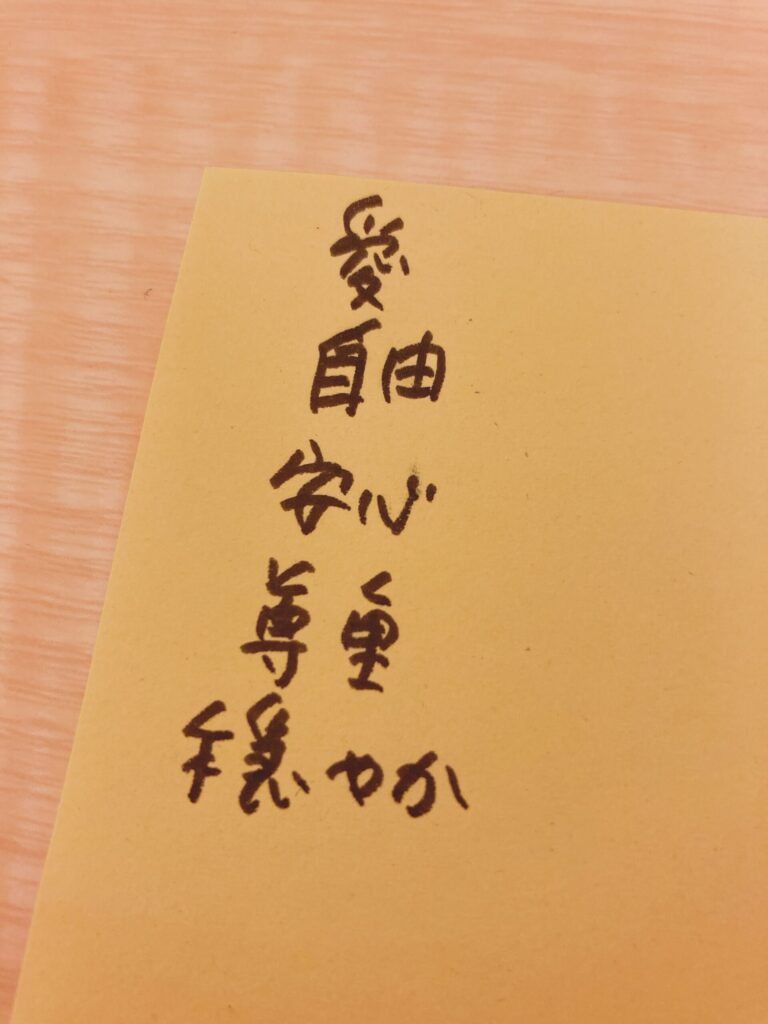 愛
自由
安心
尊重
穏やか